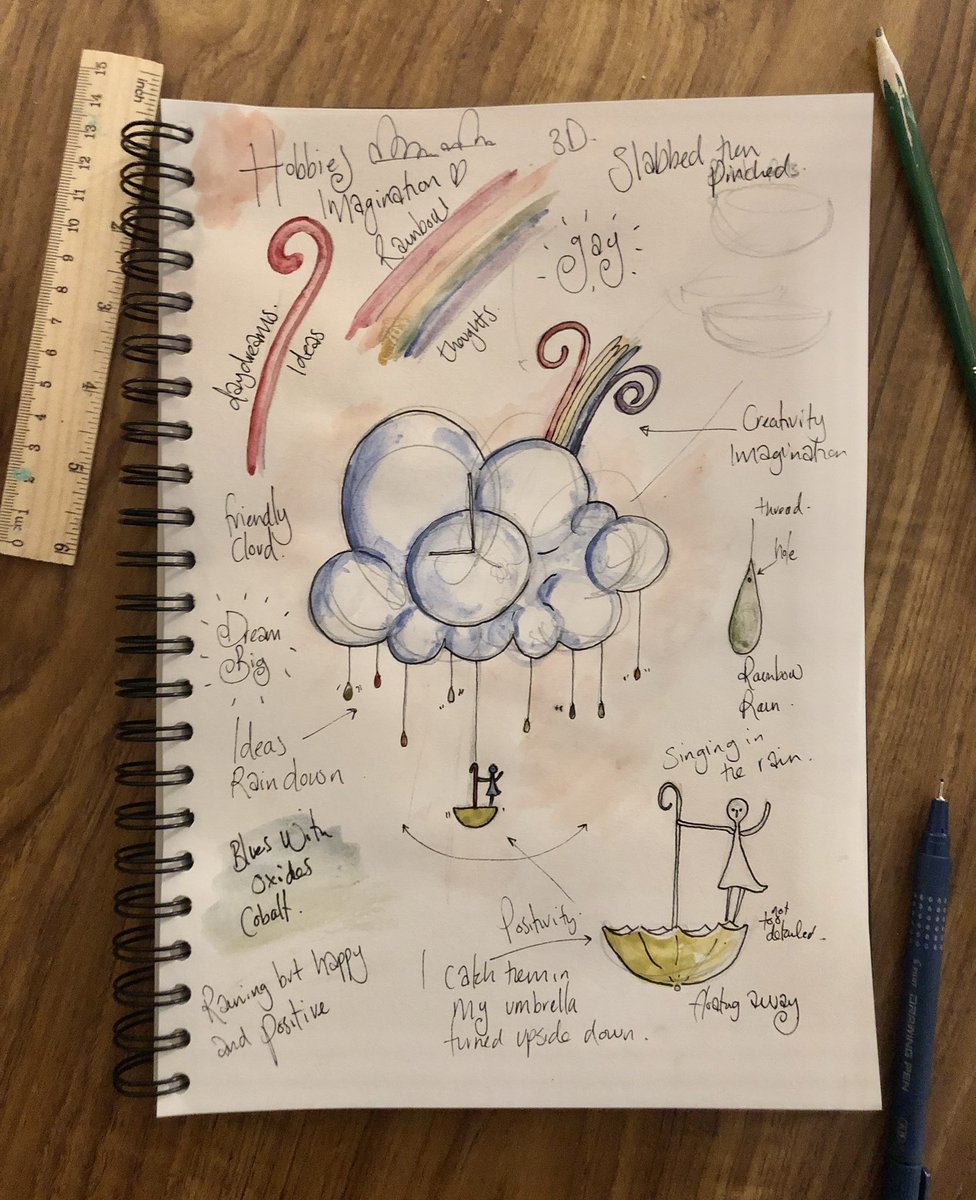 Hobbies
Imagination
Rainbow
3D.
Slabbed then
Pincheds.
gay
daydreams.
Ideas
thoughts.
Creativity
Imagination
thread.
hole
Friendly
Cloud.
Dream
Big
Rainbow
Rain.
Ideas
Rain down
Singing in
the rain.
Blues With
Oxides
Cobalt.
Positivity.
not
to
detailed.
I catch them in
My umbrella
turned upside down.
floating away
Raining but happy
and positive
inch
15
14
13
12
11
10
9
8
7
6
5
4
3
1
0 cm
3
4
5
6
PILOT DRAWING PEN